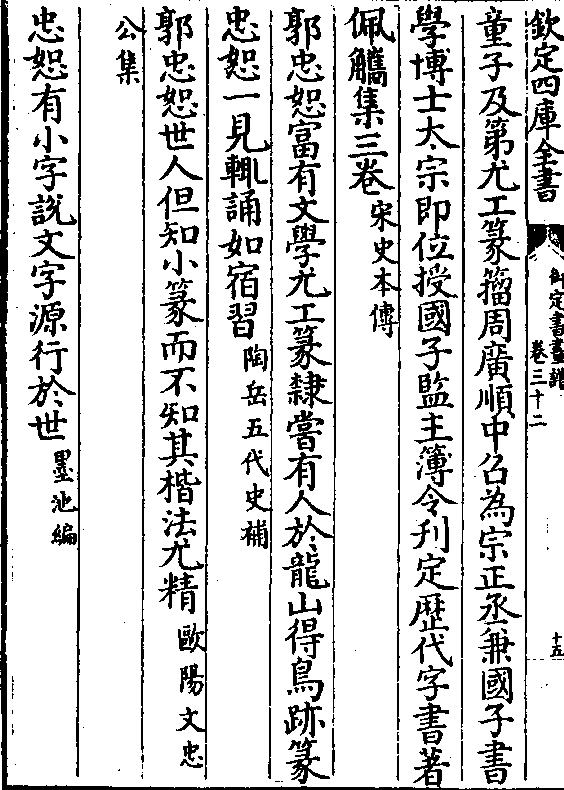 欽定四庫全書
御定書畫譜
卷三十二
十五
童子及第尤工篆籀周廣順中召為宗正丞兼國子書
學博士太宗即位授國子監主簿令刋定歴代字書著
佩觿集三卷宋史本傳
郭忠恕富有文學尤工篆隸嘗有人於龍山得鳥跡篆
忠恕一見輒誦如宿習陶岳五代史補
郭忠恕世人但知小篆而不知其楷法尤精歐陽文忠
公集
忠恕有小字說文字源行於世墨池編